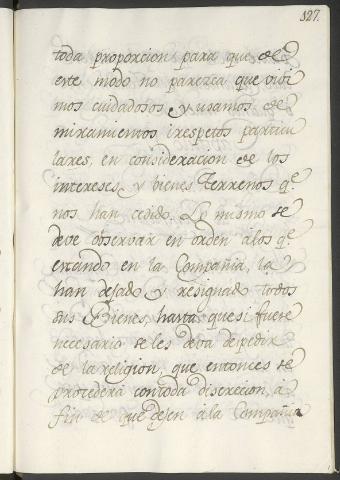 127.
toda proporcion para que de
este modo no parezca que vivi
mos cuidadosos y usamos de
miramientos irespetos particu
lares, en consideracion de los
intereses y bienes terrenos q.e
nos han cedido. Lo mismo se
deve observar en orden alos q.e
estando en la Compañia, la
han dejado y resignado todos
sus Bienes, hasta quesi fuere
necesario seles deva depedir
de la religion, que entonces se
procederá contoda discrecion, á
fin de que dejen ala Compañia